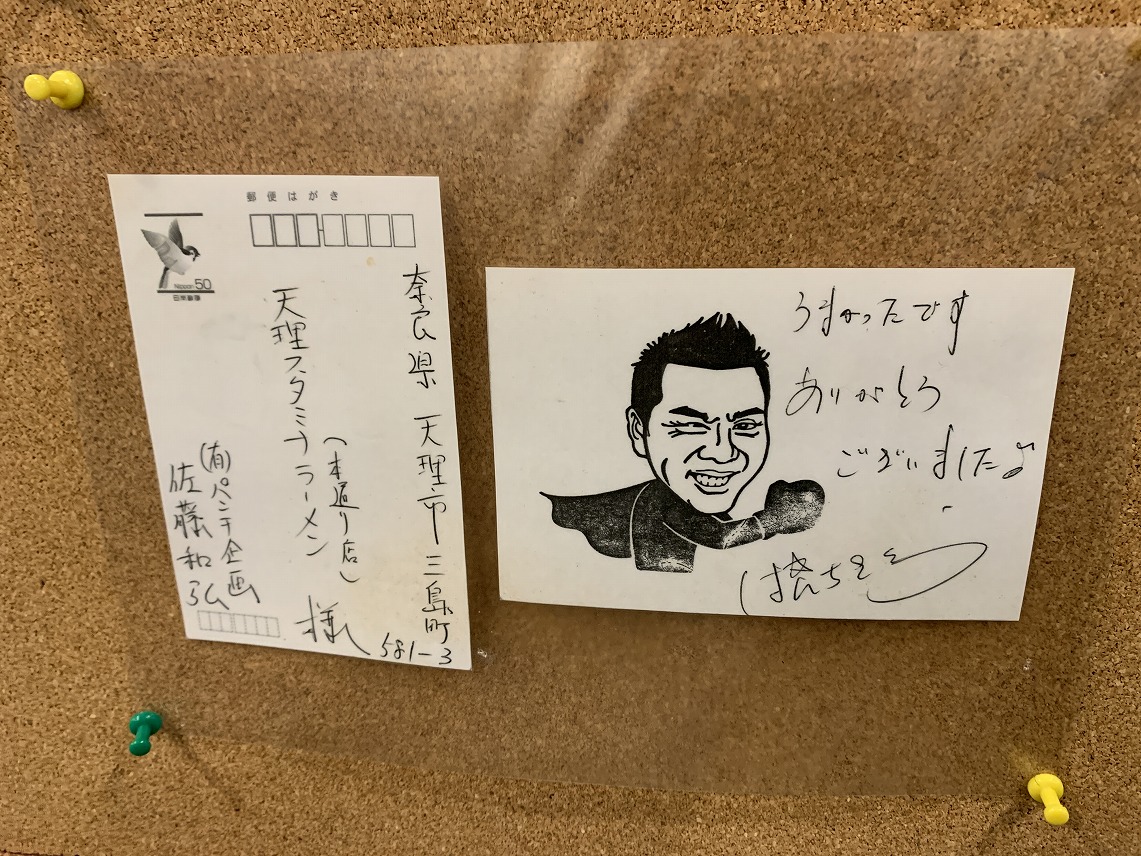 郵便はがき
Nippon 50
日本郵便
奈良県 天理市 三島町
581-3
天理スタミナラーメン
(本通り店)
様
(有)パンチ企画
佐藤和弘
うまかったです
ありがとう
ございました♪